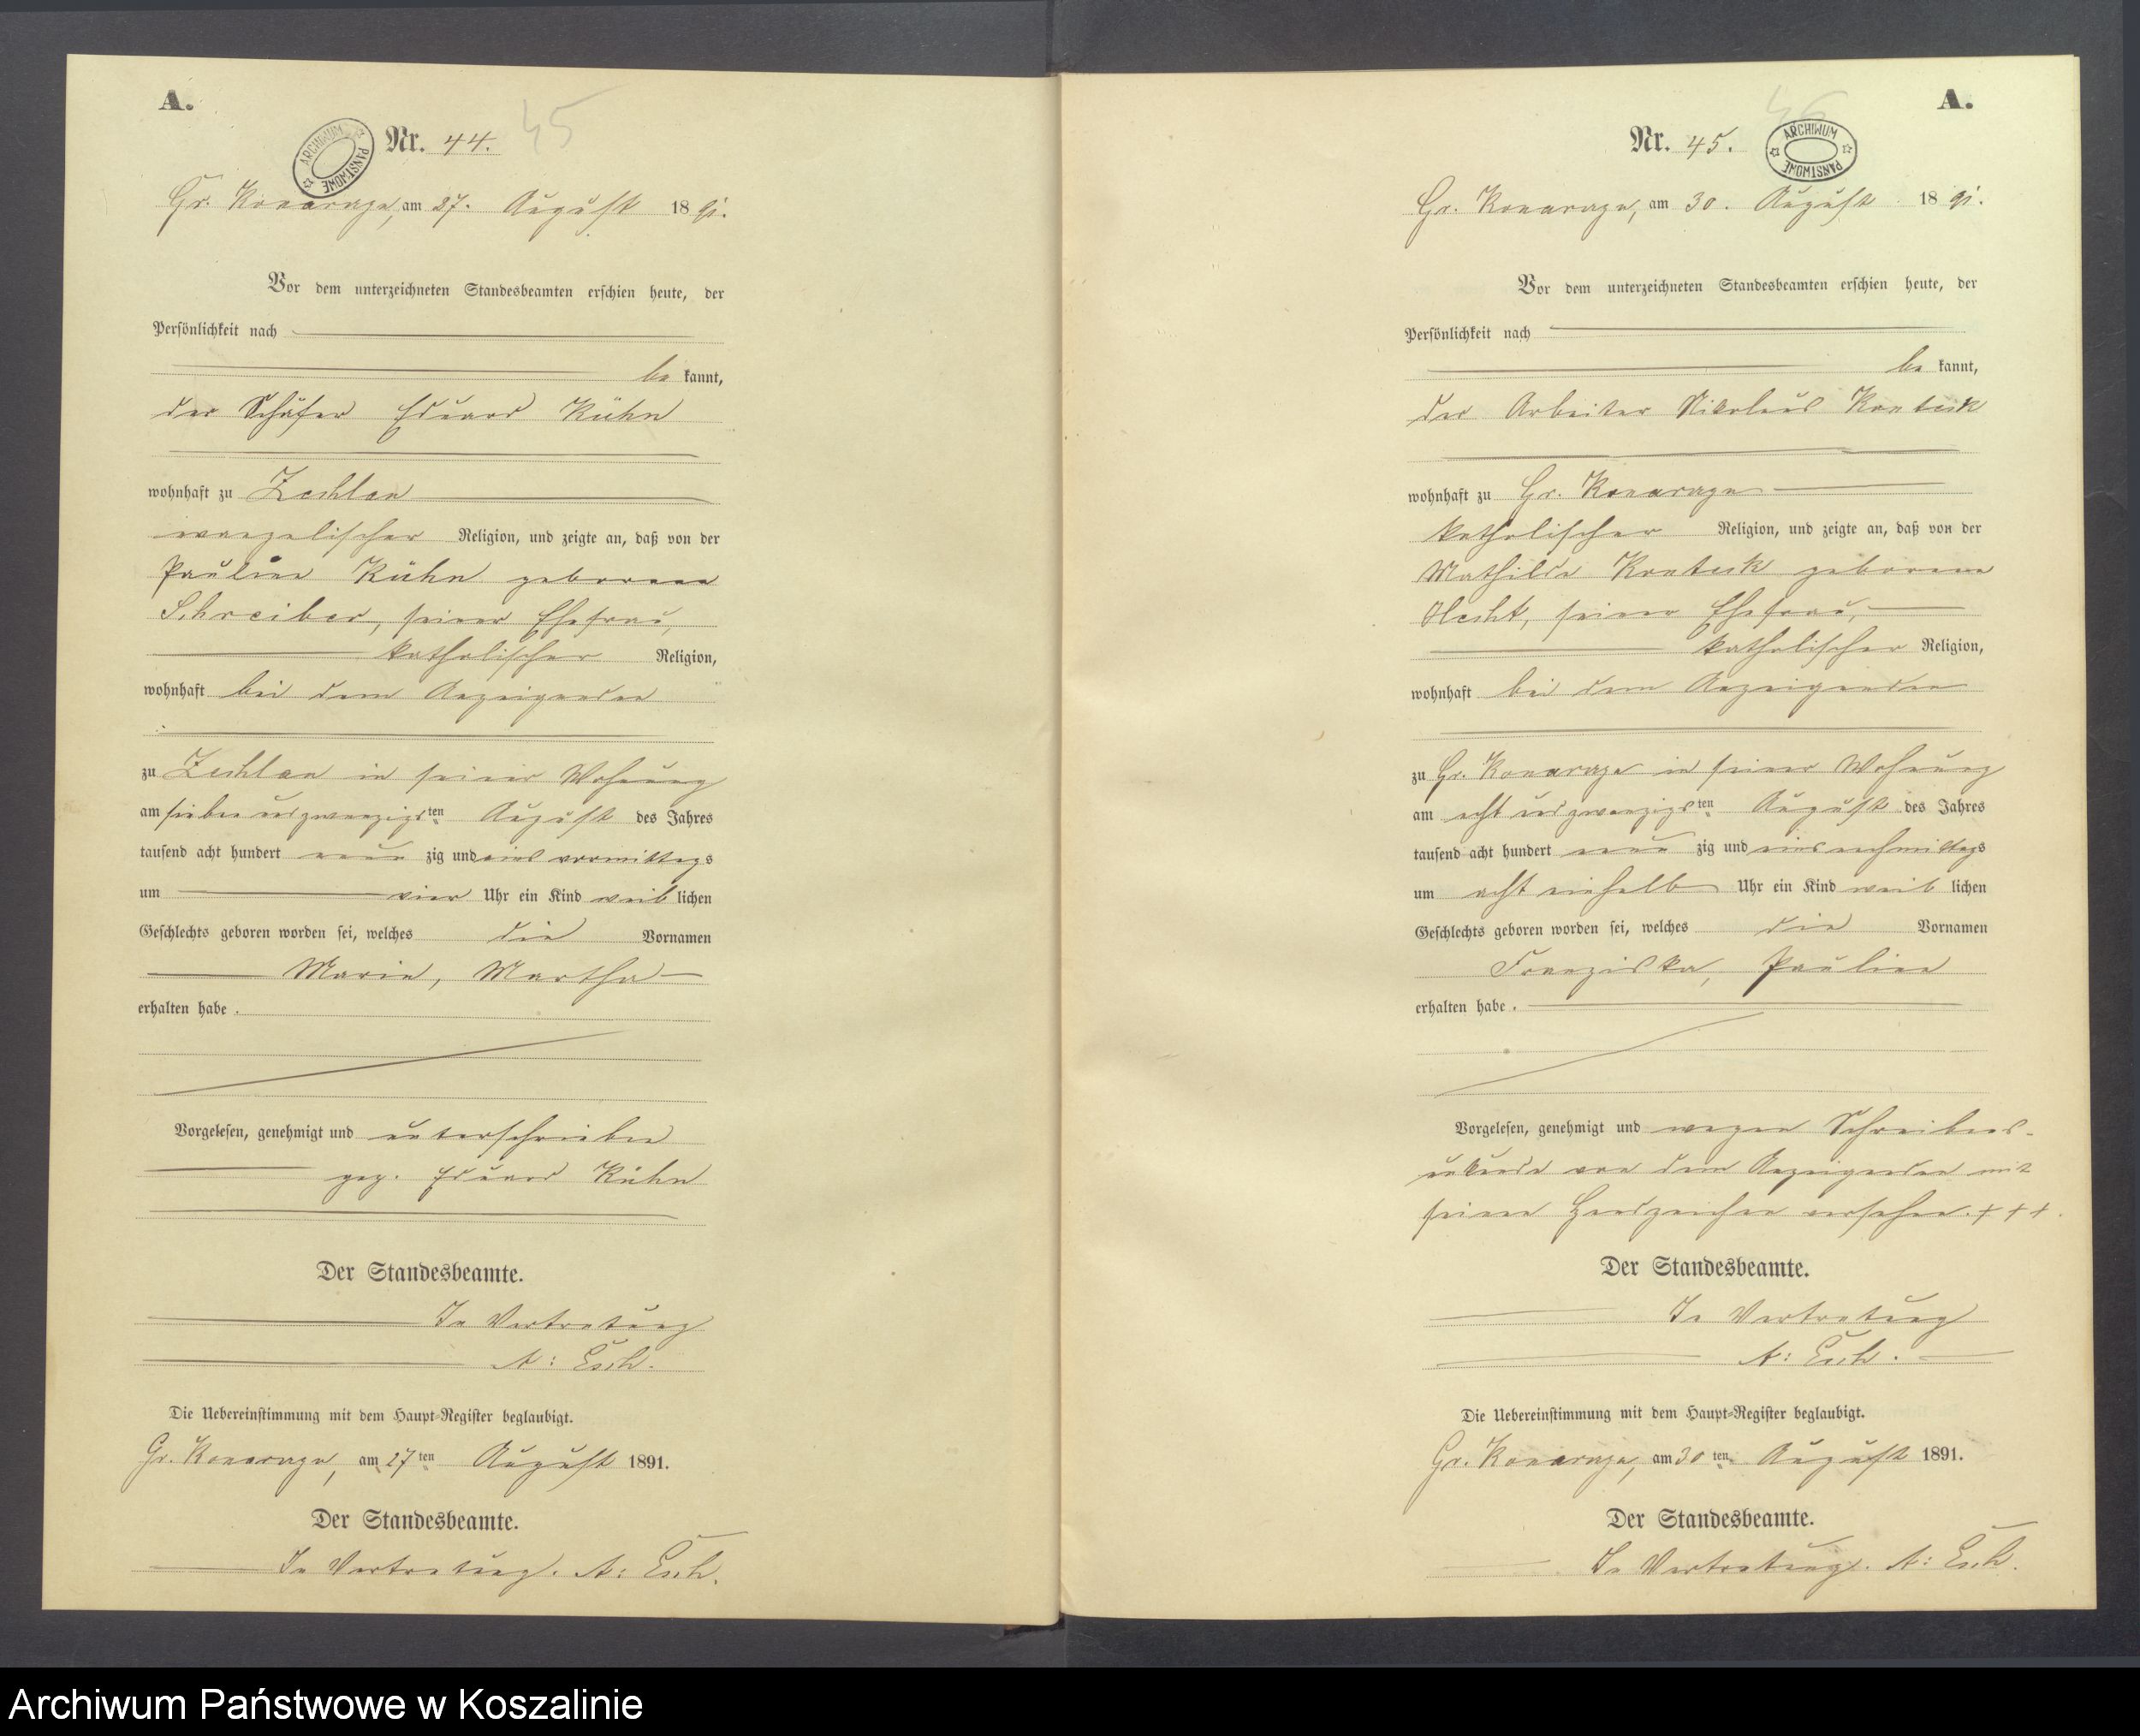 A.
45
Nr. 44.
ARCHIWUM PAŃSTWOWE
Gr. Konarzyn, am 27. August 1891.
Vor dem unterzeichneten Standesbeamten erschien heute, der
Persönlichkeit nach
be kannt,
der Schäfer Eduard Kühn
wohnhaft zu Zechlau
evangelischer Religion, und zeigte an, daß von der
Pauline Kühn geborene
Schreiber, seiner Ehefrau,
katholischer Religion,
wohnhaft bei dem Anzeigenden
zu Zechlau in seiner Wohnung
am sieben und zwanzigsten August des Jahres
tausend acht hundert neun zig und eins vormittags
um vier Uhr ein Kind weib lichen
Geschlechts geboren worden sei, welches die Vornamen
Marie, Martha
erhalten habe.
Vorgelesen, genehmigt und unterschrieben
gez. Eduard Kühn
Der Standesbeamte.
In Vertretung
A: Esch.
Die Uebereinstimmung mit dem Haupt-Register beglaubigt.
Gr. Konarzyn, am 27ten August 1891.
Der Standesbeamte.
In Vertretung. A: Esch.
A.
46
Nr. 45.
ARCHIWUM PAŃSTWOWE
Gr. Konarzyn, am 30. August 1891.
Vor dem unterzeichneten Standesbeamten erschien heute, der
Persönlichkeit nach
be kannt,
der Arbeiter Nikolaus Konteck
wohnhaft zu Gr. Konarzyn
katholischer Religion, und zeigte an, daß von der
Mathilde Konteck geborene
Hecht, seiner Ehefrau,
katholischer Religion,
wohnhaft bei dem Anzeigenden
zu Gr. Konarzyn in seiner Wohnung
am acht und zwanzigsten August des Jahres
tausend acht hundert neun zig und eins nachmittags
um acht einhalb Uhr ein Kind weib lichen
Geschlechts geboren worden sei, welches die Vornamen
Franziska, Pauline
erhalten habe.
Vorgelesen, genehmigt und wegen Schreibens-
unkunde von dem Anzeigenden mit
seinen Handzeichen versehen. + + +.
Der Standesbeamte.
In Vertretung
A: Esch.
Die Uebereinstimmung mit dem Haupt-Register beglaubigt.
Gr. Konarzyn, am 30ten August 1891.
Der Standesbeamte.
In Vertretung. A: Esch.
Archiwum Państwowe w Koszalinie